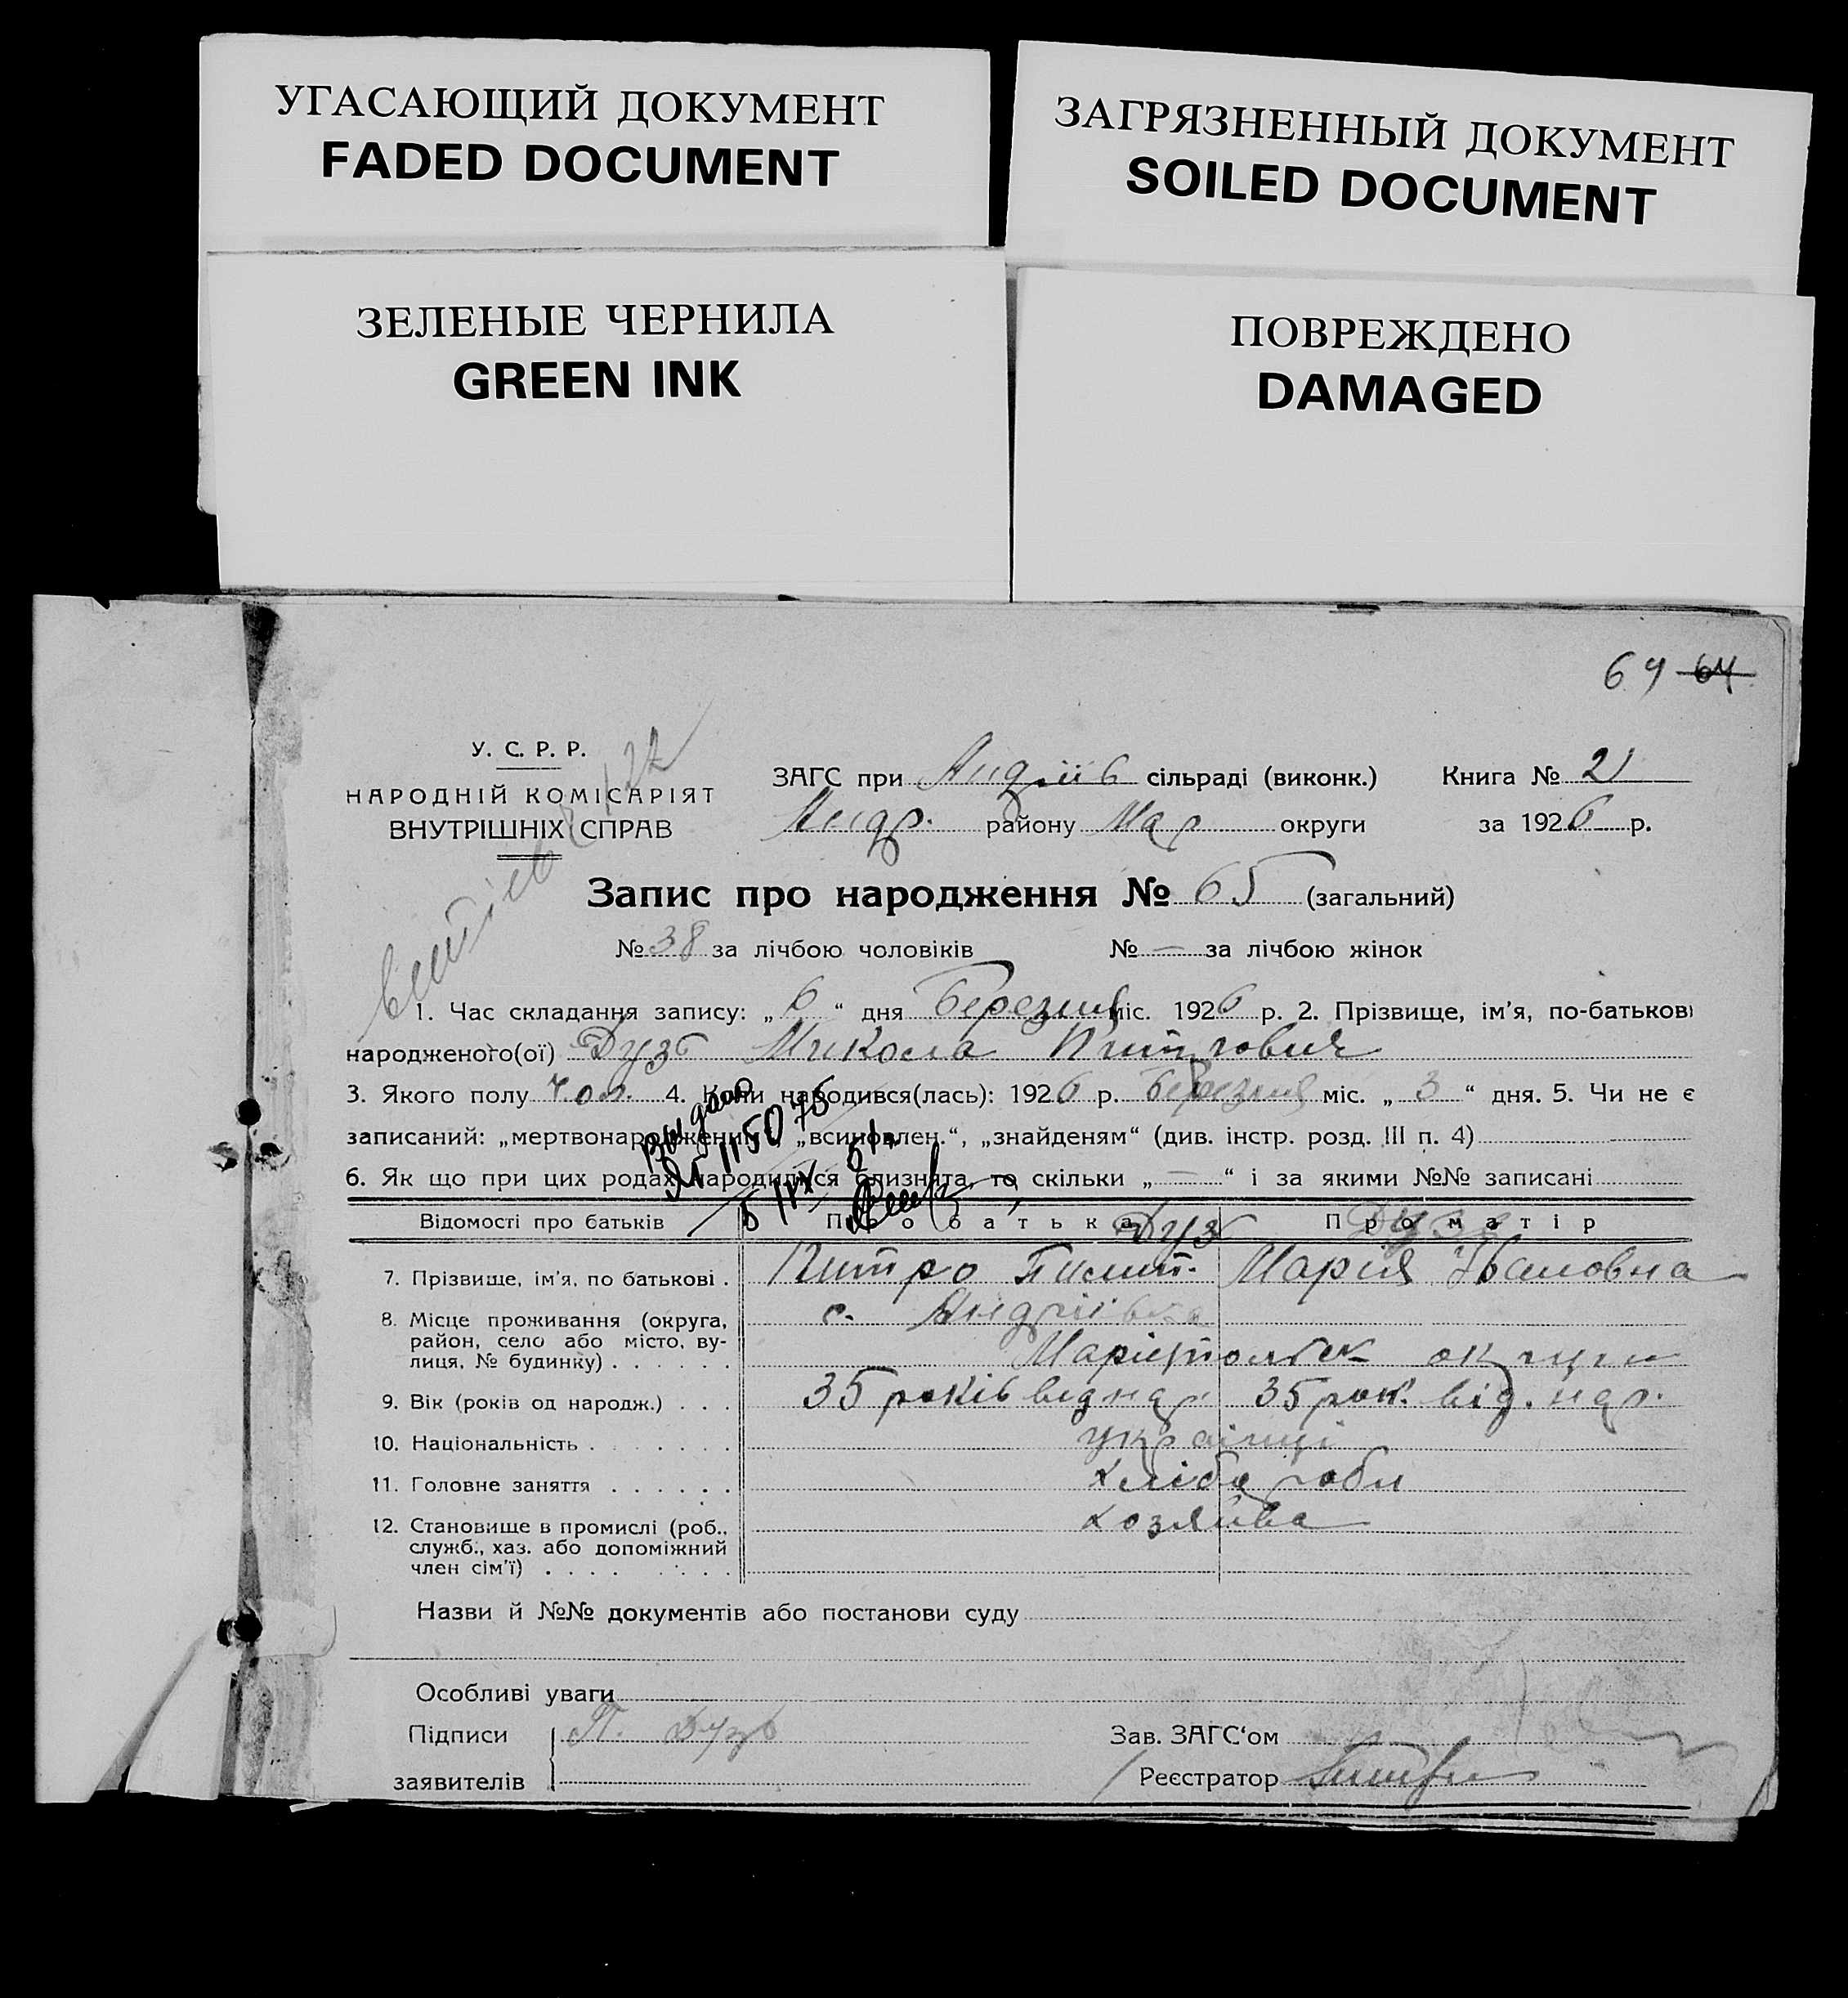 УГАСАЮЩИЙ ДОКУМЕНТ
FADED DOCUMENT
ЗАГРЯЗНЕННЫЙ ДОКУМЕНТ
SOILED DOCUMENT
ЗЕЛЕНЫЕ ЧЕРНИЛА
GREEN INK
ПОВРЕЖДЕНО
DAMAGED
69 64
У. С. Р. Р.
НАРОДНІЙ КОМІСАРІЯТ
ВНУТРІШНІХ СПРАВ
ЗАГС при Андріїв сільраді (виконк.) Книга № 21
Андр. району Мар округи за 1926 р.
Запис про народження № 65 (загальний)
№ 38 за лічбою чоловіків № — за лічбою жінок
1. Час складання запису: „6“ дня Березня міс. 1926 р. 2. Прізвище, ім'я, по-батькові
народженого(ої) Дузь Микола Питрович
3. Якого полу чол. 4. Коли народився(лась): 1926 р. Березня міс. „3“ дня. 5. Чи не є
записаний: „мертвонароджений“, „всиновлен.“, „знайденям“ (див. інстр. розд. III п. 4)
6. Як що при цих родах народилися близнята, то скільки „—“ і за якими №№ записані
Выдано
115076
Відомості про батьків Про батька Про матір
Дузь Дузь
7. Прізвище, ім'я, по батькові . Питро Пилип. Марія Івановна
8. Місце проживання (округа, с. Андріївка
район, село або місто, ву-
лиця, № будинку) . . . . . . Маріупольск округи
9. Вік (років од народж.) . . . 35 років від нар 35 рок. від. нар.
10. Національність . . . . . . . українці
11. Головне заняття . . . . . . хлібороби
12. Становище в промислі (роб., хозяйва
служб., хаз. або допоміжний
член сім'ї) . . . .
Назви й №№ документів або постанови суду
Особливі уваги
Підписи П. Дузь Зав. ЗАГС'ом
заявителів Реєстратор